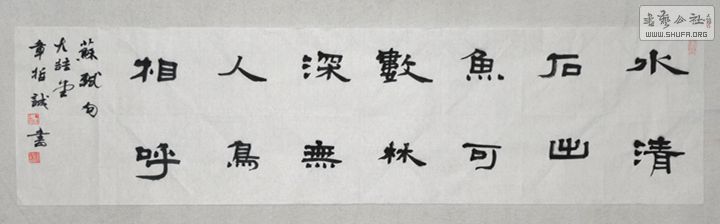 水清
石出
魚可
數林
深無
人鳥
相呼
蘇軾句
大
章柏誠書
書藝公社
WWW.SHUFA.ORG